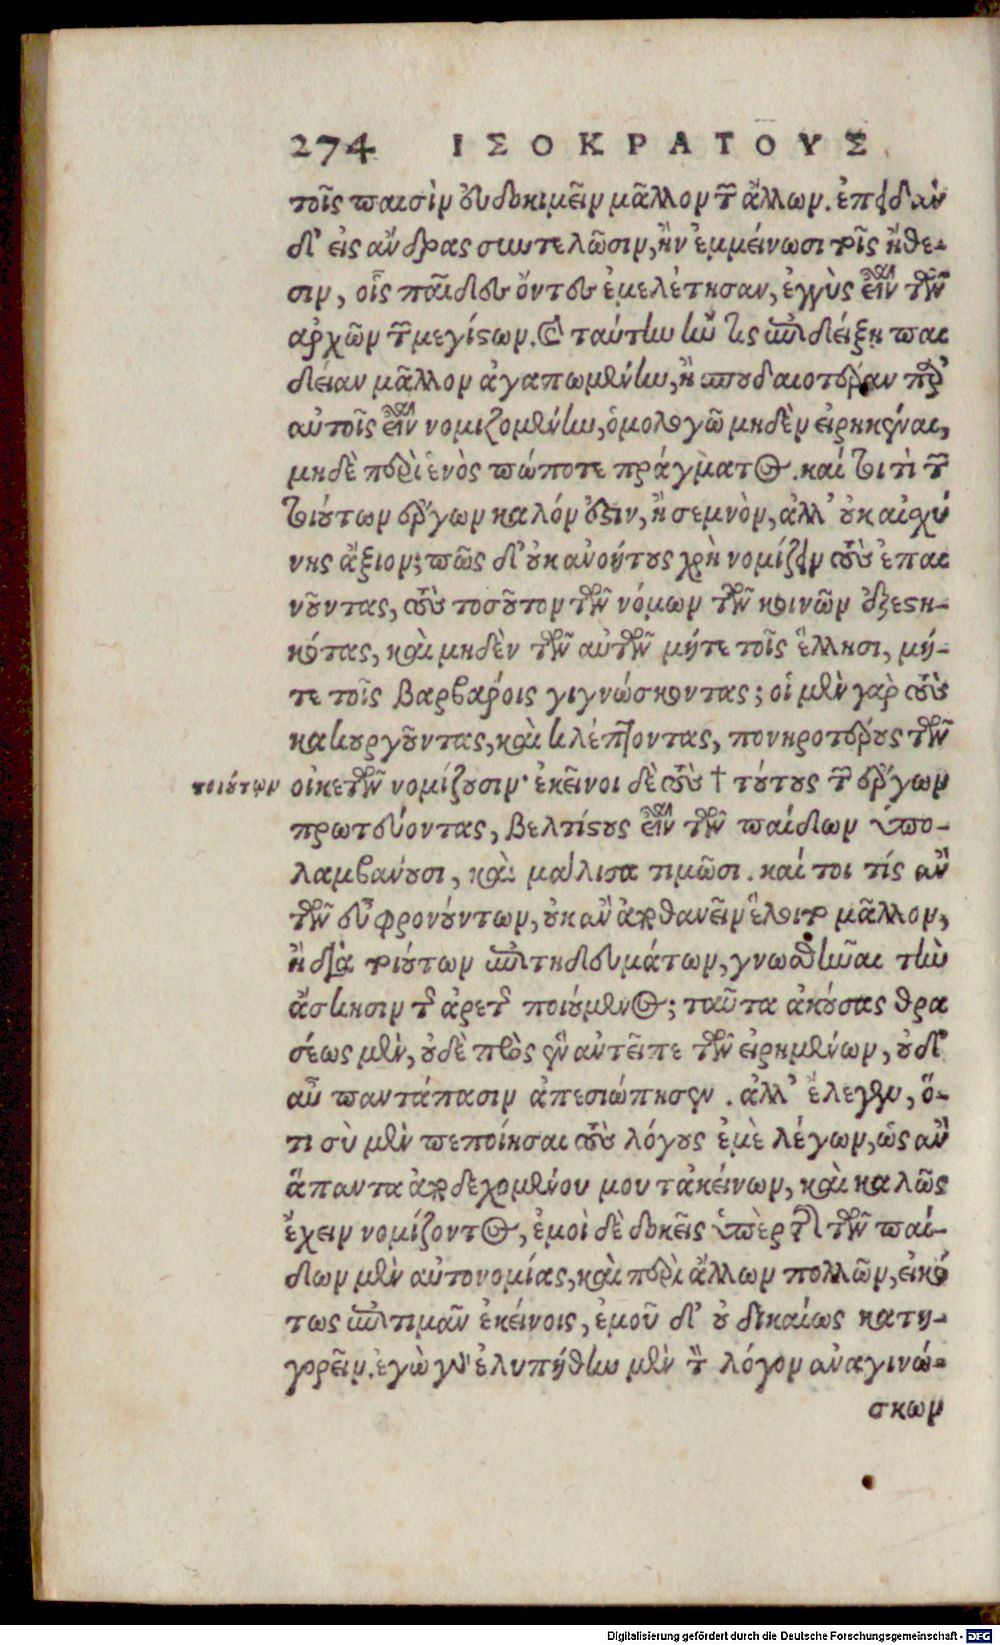 274 ΙΣΟΚΡΑΤΟΥΣ
τοῖς παισὶν εὐδοκιμεῖν μᾶλλον τῶν ἄλλων. ἐπειδὰν
δ' εἰς ἄνδρας συντελῶσιν, ἢν ἐμμείνωσι τοῖς ἤθε-
σιν, οἷς παῖδες ὄντες ἐμελέτησαν, ἐγγὺς εἶναι τῶν
ἀρχῶν τῶν μεγίστων. καὶ ταύτην ἤν τις μὴ ἐπιδείξῃ παι
δείαν μᾶλλον ἀγαπωμένην, ἢ σπουδαιοτέραν παρ'
αὐτοῖς εἶναι νομιζομένην, ὁμολογῶ μηδὲν εἰρηκέναι,
μηδὲ περὶ ἑνὸς πώποτε πράγματος. καί τοι τί τῶν
τοιούτων ἔργων καλόν ἐστιν, ἢ σεμνὸν, ἀλλ' οὐκ αἰσχύ
νης ἄξιον; πῶς δ' οὐκ ἀνοήτους χρὴ νομίζειν τοὺς ἐπαι
νοῦντας, τοὺς τοσοῦτον τῶν νόμων τῶν κοινῶν ἐξεστη-
κότας, καὶ μηδὲν τῶν αὐτῶν μήτε τοῖς ἕλλησι, μή-
τε τοῖς βαρβάροις γιγνώσκοντας; οἱ μὲν γὰρ τοὺς
κακουργοῦντας, καὶ κλέπτοντας, πονηροτέρους τῶν
τοιούτων οἰκετῶν νομίζουσιν· ἐκεῖνοι δὲ τοὺς † τούτους τῶν ἔργων
πρωτεύοντας, βελτίστους εἶναι τῶν παίδων ὑπο-
λαμβάνουσι, καὶ μάλιστα τιμῶσι. καί τοι τίς ἂν
τῶν εὖ φρονούντων, οὐκ ἂν ἀποθανεῖν ἕλοιτο μᾶλλον,
ἢ διὰ τοιούτων ἐπιτηδευμάτων, γνωσθῆναι τὴν
ἄσκησιν τῆς ἀρετῆς ποιούμενος; ταῦτα ἀκούσας θρα
σέως μὲν, οὐδὲ πρὸς ἓν ἀντεῖπε τῶν εἰρημένων, οὐδ'
αὖ παντάπασιν ἀπεσιώπησεν. ἀλλ' ἔλεγεν, ὅ-
τι σὺ μὲν πεποίησαι τοὺς λόγους ἐμὲ λέγων, ὡς ἂν
ἅπαντα ἀποδεχομένου μου τἀκείνων, καὶ καλῶς
ἔχειν νομίζοντος, ἐμοὶ δὲ δοκεῖς ὑπὲρ τῆς τῶν παί-
δων μὲν αὐτονομίας, καὶ περὶ ἄλλων πολλῶν, εἰκό
τως ἐπιτιμᾶν ἐκείνοις, ἐμοῦ δ' οὐ δικαίως κατη-
γορεῖν. ἐγὼ γὰρ ἐλυπήθην μὲν τὸν λόγον ἀναγινώ-
σκων
Digitalisierung gefördert durch die Deutsche Forschungsgemeinschaft - DFG